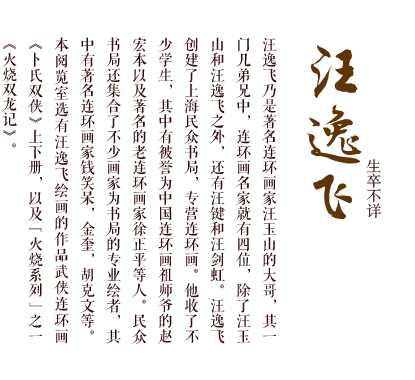 汪逸飞
生卒不详
汪逸飞乃是著名连环画家汪玉山的大哥，其一
门几弟兄中，连环画名家就有四位，除了汪玉
山和汪逸飞之外，还有汪键和汪剑虹。汪逸飞
创建了上海民众书局，专营连环画。他收了不
少学生，其中有被誉为中国连环画祖师爷的赵
宏本以及著名的老连环画家徐正平等人。民众
书局还集合了不少画家为书局的专业绘者，其
中有著名连环画家钱笑呆，金奎，胡克文等。
本阅览室选有汪逸飞绘画的作品武侠连环画
《卜氏双侠》上下册，以及「火烧系列」之一
《火烧双龙记》。